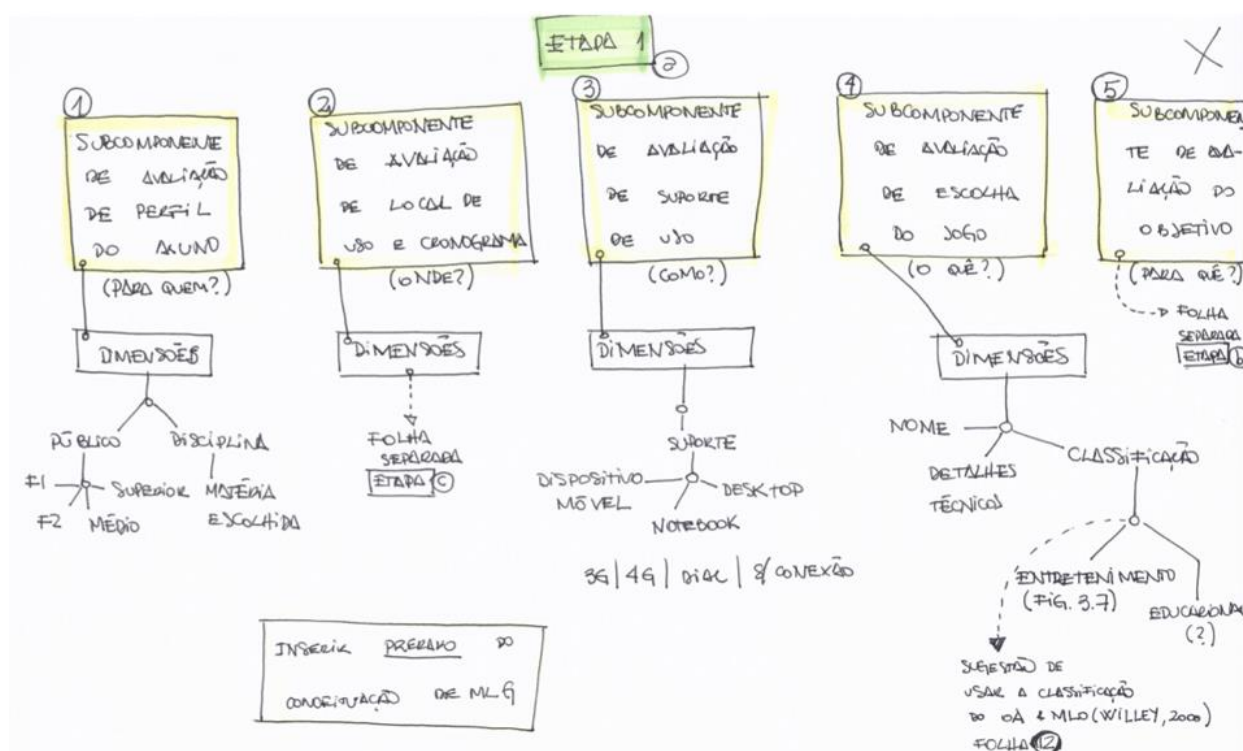 ETAPA 1
a
1
SUBCOMPONENTE
DE AVALIAÇÃO
DE PERFIL
DO ALUNO
(PARA QUEM?)
DIMENSÕES
PÚBLICO
DISCIPLINA
F1
SUPERIOR
F2
MÉDIO
MATÉRIA
ESCOLHIDA
2
SUBCOMPONENTE
DE AVALIAÇÃO
DE LOCAL DE
USO E CRONOGRAMA
(ONDE?)
DIMENSÕES
FOLHA
SEPARADA
ETAPA C
3
SUBCOMPONENTE
DE AVALIAÇÃO
DE SUPORTE
DE USO
(COMO?)
DIMENSÕES
SUPORTE
DISPOSITIVO
MÓVEL
DESKTOP
NOTEBOOK
3G | 4G | DIAL | S/ CONEXÃO
4
SUBCOMPONENTE
DE AVALIAÇÃO
DE ESCOLHA
DO JOGO
(O QUÊ?)
DIMENSÕES
NOME
DETALHES
TÉCNICOS
CLASSIFICAÇÃO
ENTRETENIMENTO
(FIG. 3.7)
EDUCACIONA
(?)
SUGESTÃO DE
USAR A CLASSIFICAÇÃO
DO OA & MLO (WILLEY, 2000)
FOLHA 12
5
SUBCOMPONEN
TE DE AVA-
LIAÇÃO DO
OBJETIVO
(PARA QUÊ?)
FOLHA
SEPARADA
ETAPA b
INSERIR DO
DE MLG